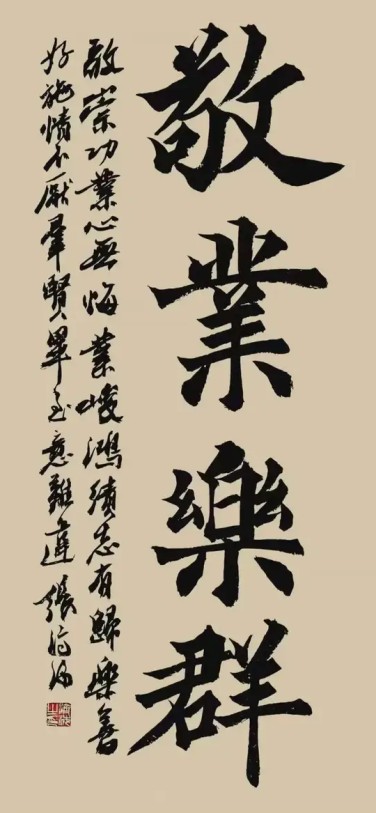 敬業樂群
敬崇功業心無悔業峻鴻績志有歸樂善
好施情不厭羣賢畢至意難違 張